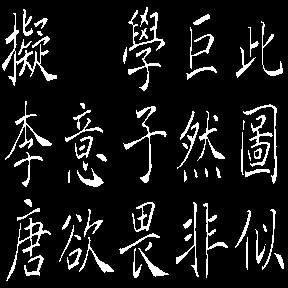 此圖似
巨然非
學子畏
意欲
擬李唐